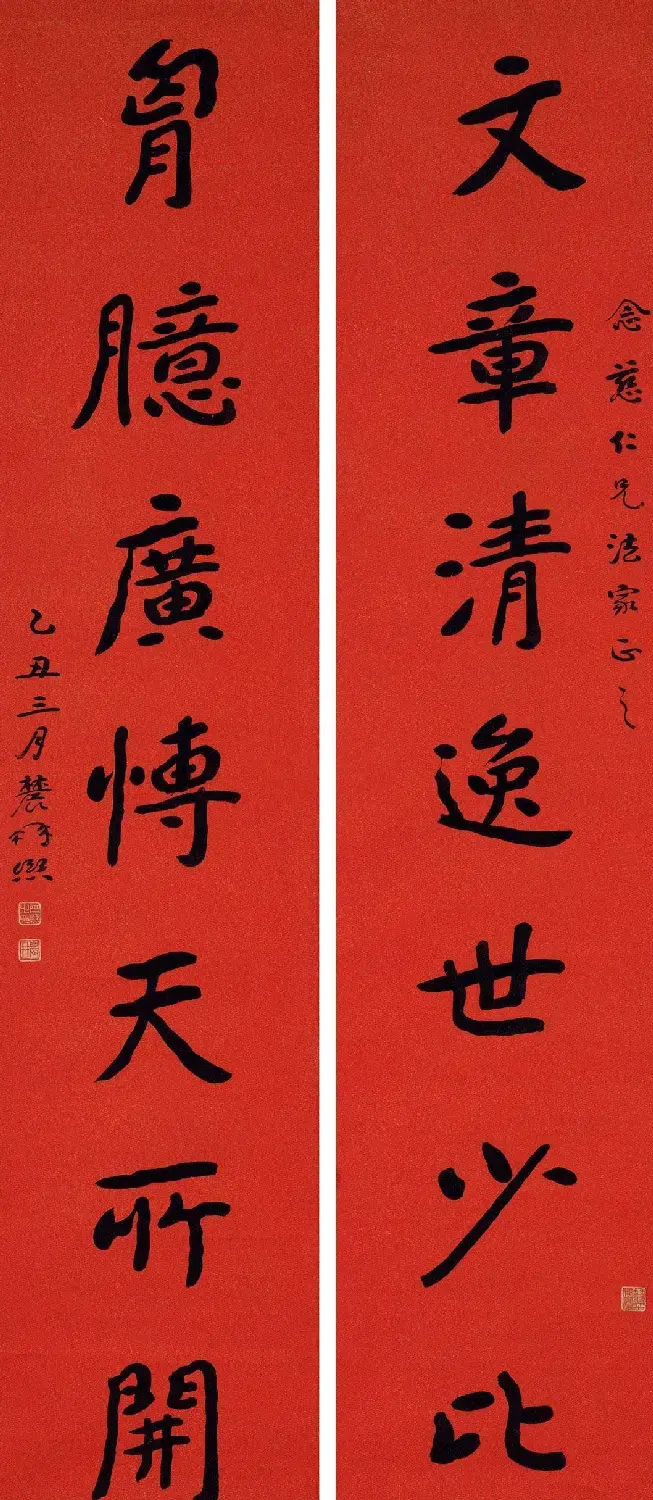 念慈仁兄法家正之
文章清逸世少比
胷臆廣愽天所開
乙丑三月農髯熙